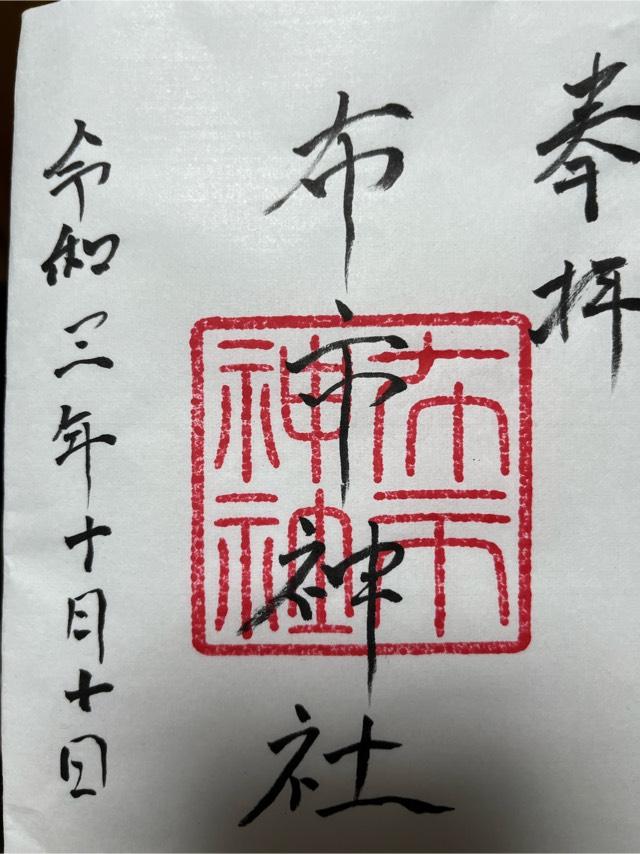 奉拝
布市神社
布市神社
令和三年十月十日